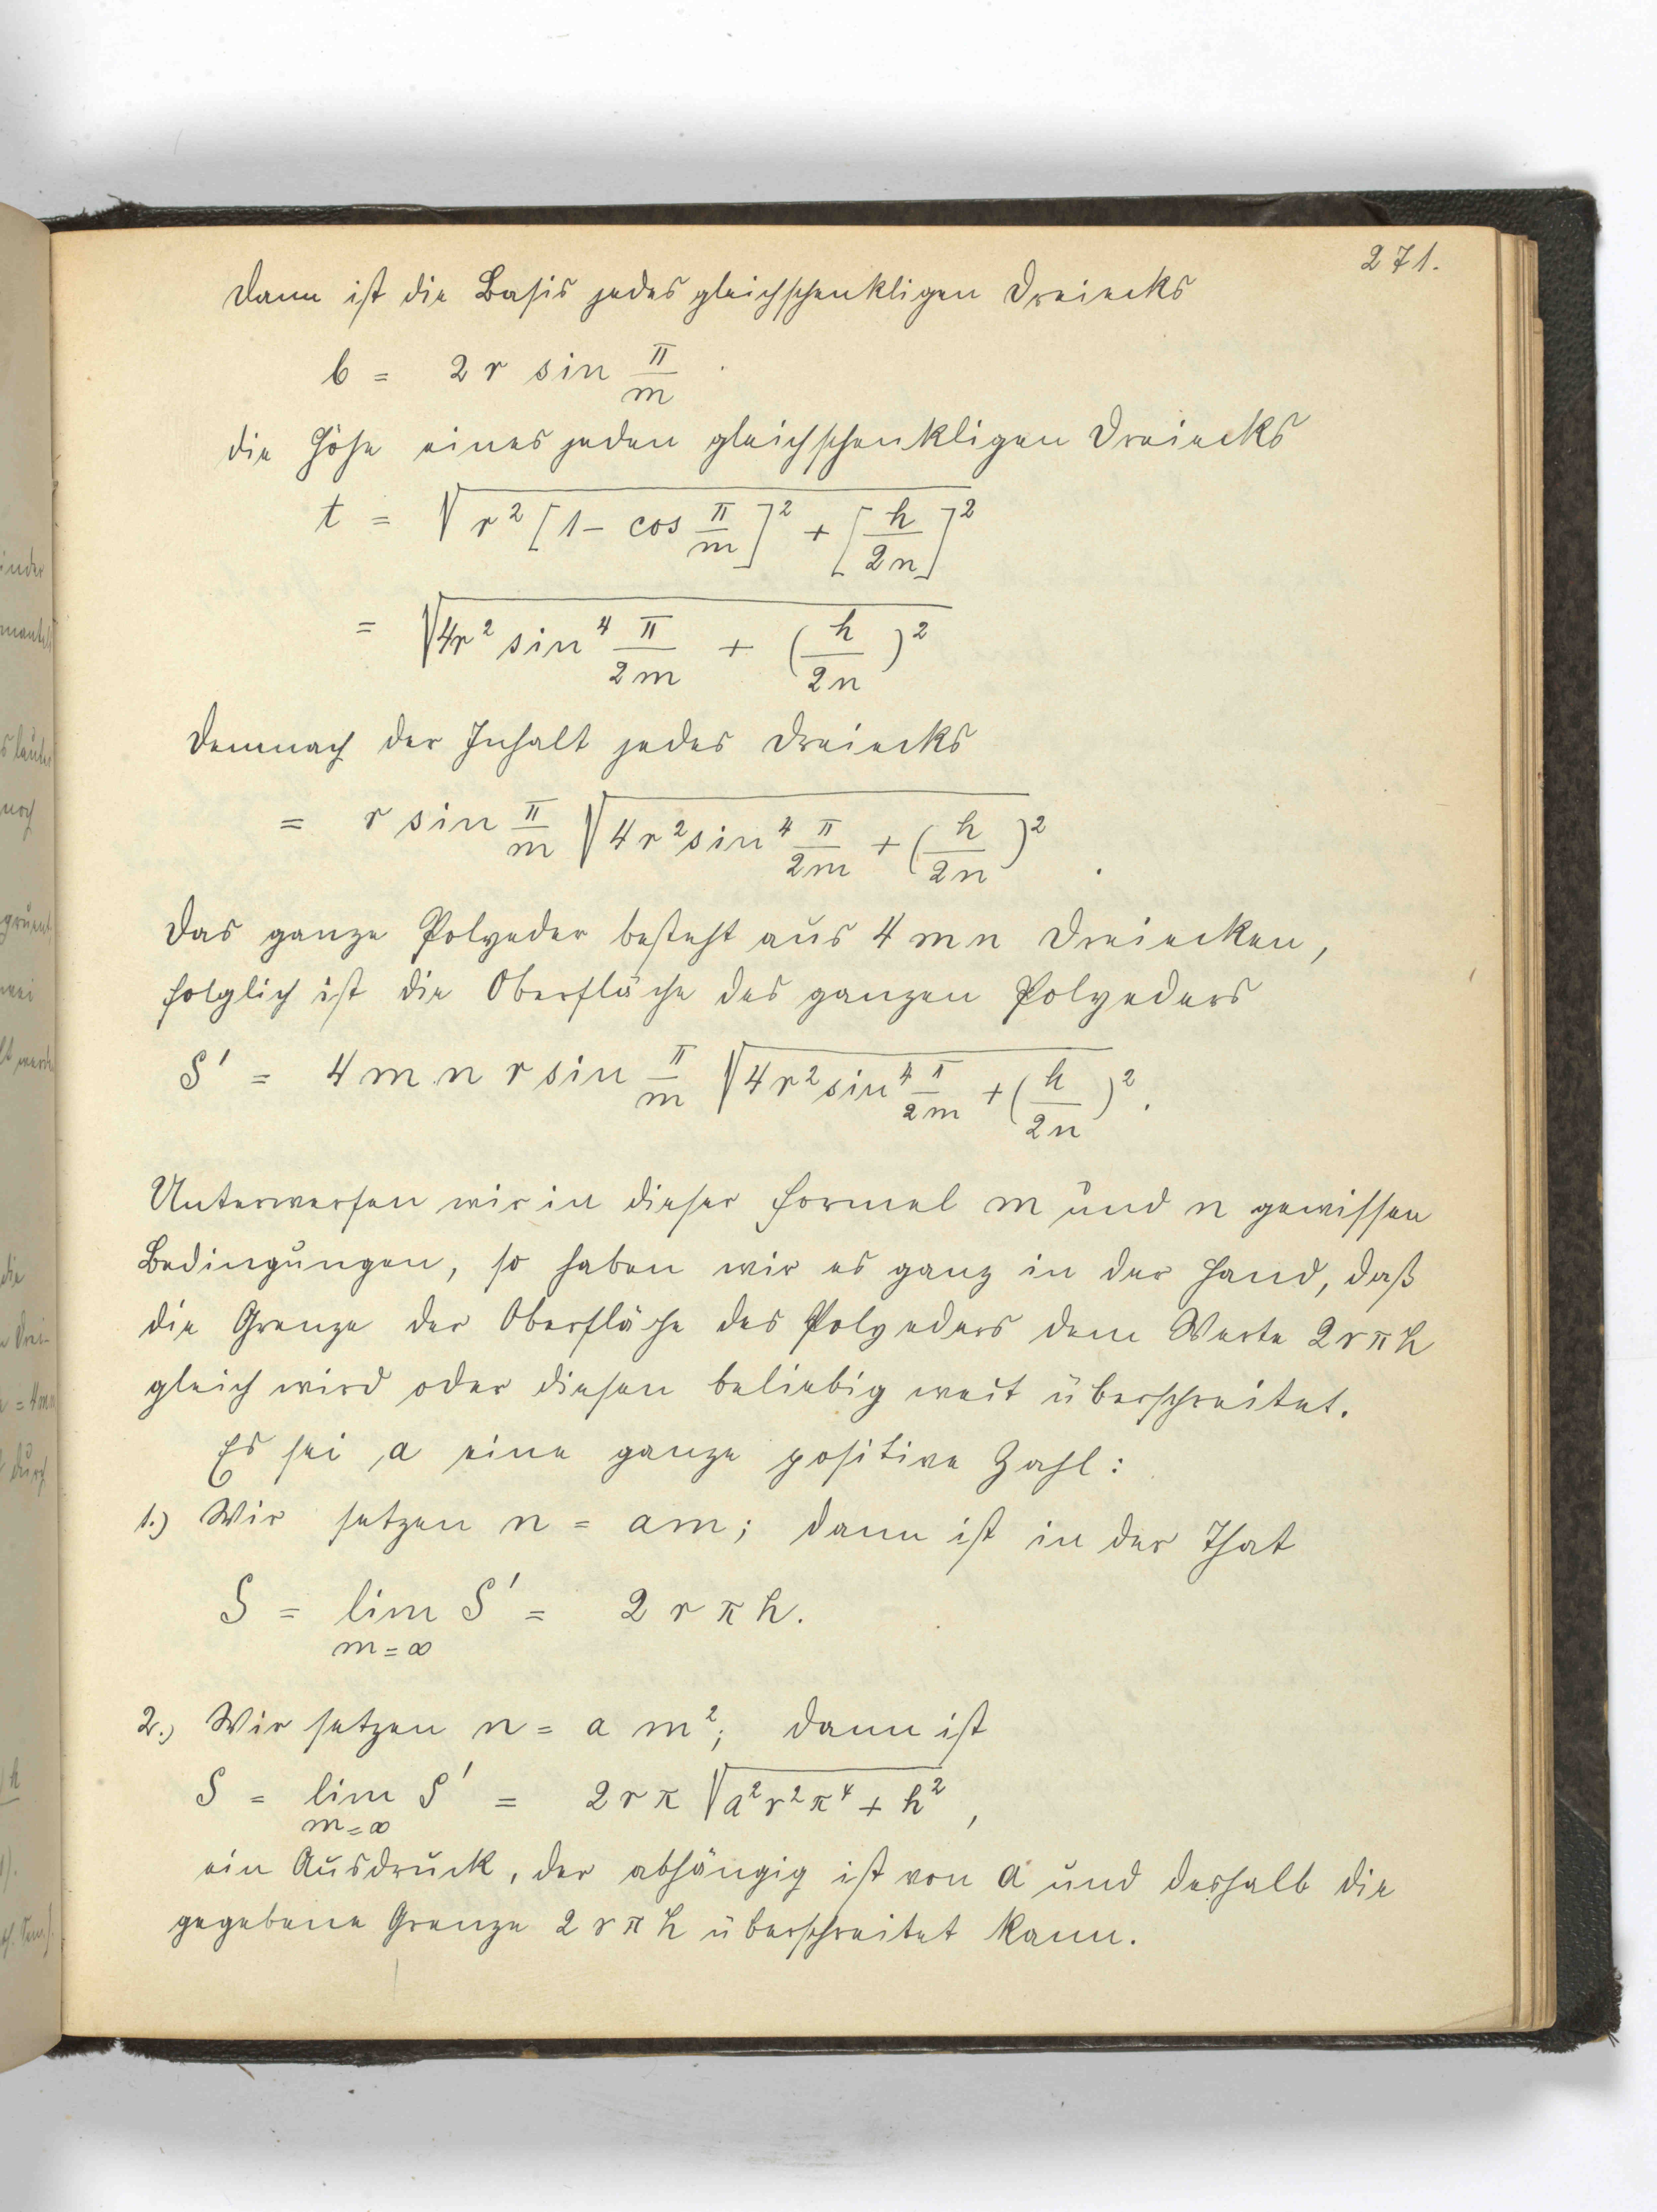 271.
Dann ist die Basis jedes gleichschenkligen Dreiecks
b = 2 r sin π/m .
die Höhe eines jeden gleichschenkligen Dreiecks
t = √(r² [1 - cos π/m]² + [h/2n]²)
= √(4r² sin⁴ π/2m + (h/2n)²)
Demnach der Inhalt jedes Dreiecks
= r sin π/m √(4r² sin⁴ π/2m + (h/2n)²) .
Das ganze Polyeder besteht aus 4 m n Dreiecken,
folglich ist die Oberfläche des ganzen Polyeders
S' = 4 m n r sin π/m √(4r² sin⁴ π/2m + (h/2n)²) .
Unterwerfen wir in dieser Formel m und n gewissen
Bedingungen, so haben wir es ganz in der Hand, daß
die Grenze der Oberfläche des Polyeders dem Werte 2 r π h
gleich wird oder diesen beliebig weit überschreitet.
Es sei a eine ganze positive Zahl:
1.) Wir setzen n = am; dann ist in der That
S = lim S' = 2 r π h.
m = ∞
2.) Wir setzen n = a m²; dann ist
S = lim S' = 2 r π √(a² r² π⁴ + h²) ,
m = ∞
ein Ausdruck, der abhängig ist von a und deshalb die
gegebene Grenze 2 r π h überschreitet kann.